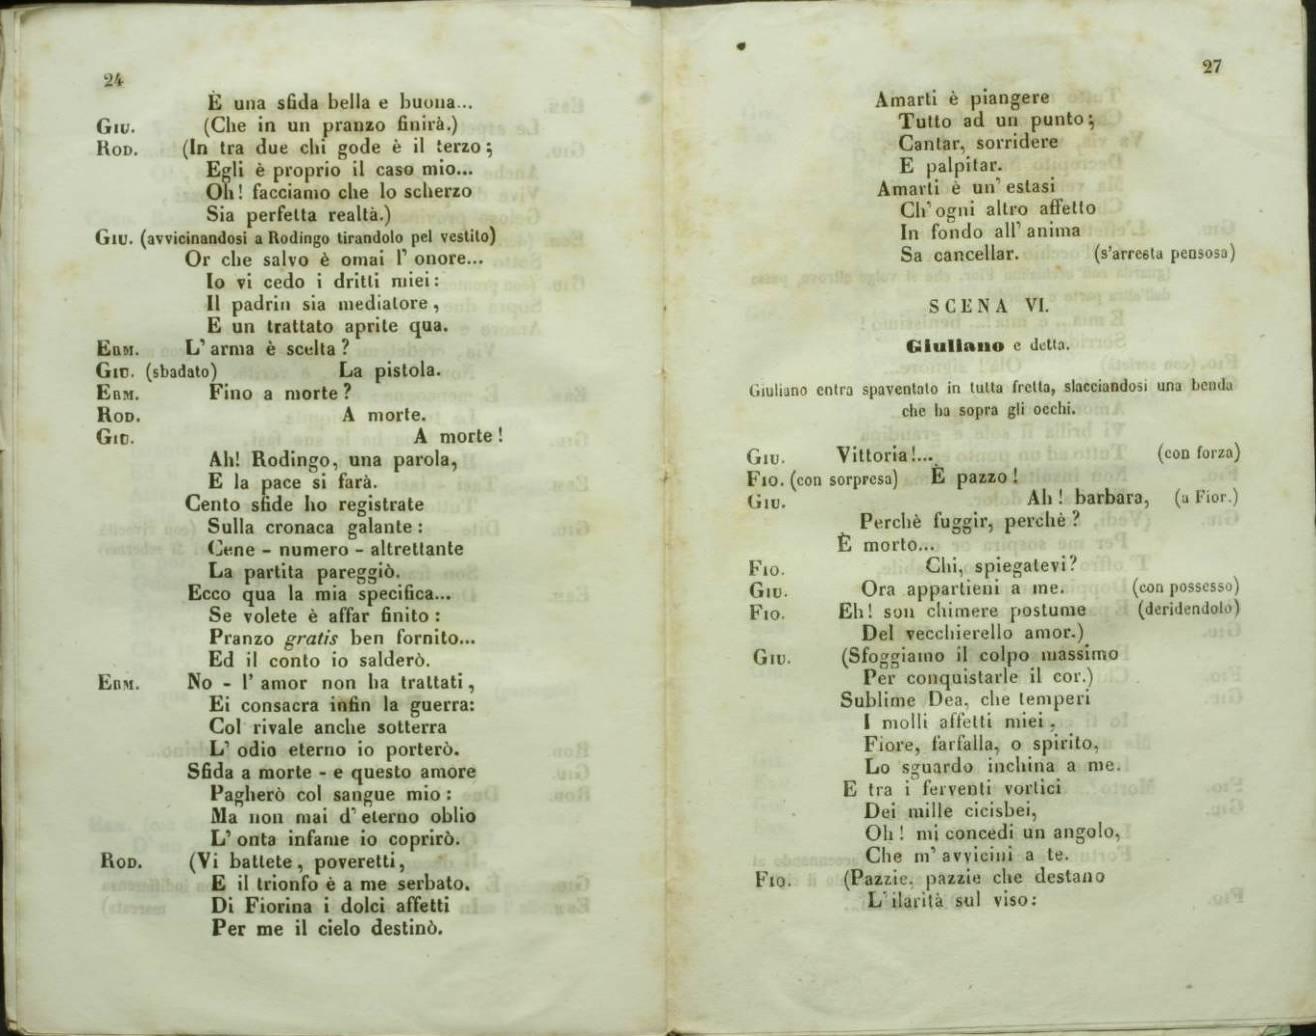 24
È una sfida bella e buona...
GIU. (Che in un pranzo finirà.)
ROD. (In tra due chi gode è il terzo;
Egli è proprio il caso mio...
Oh! facciamo che lo scherzo
Sia perfetta realtà.)
GIU. (avvicinandosi a Rodingo tirandolo pel vestito)
Or che salvo è omai l' onore...
Io vi cedo i dritti miei:
Il padrin sia mediatore,
E un trattato aprite qua.
ERM. L' arma è scelta?
GIU. (sbadato) La pistola.
ERM. Fino a morte?
ROD. A morte.
GIU. A morte!
Ah! Rodingo, una parola,
E la pace si farà.
Cento sfide ho registrate
Sulla cronaca galante:
Cene - numero - altrettante
La partita pareggiò.
Ecco qua la mia specifica...
Se volete è affar finito:
Pranzo gratis ben fornito...
Ed il conto io salderò.
ERM. No - l' amor non ha trattati,
Ei consacra infin la guerra:
Col rivale anche sotterra
L' odio eterno io porterò.
Sfida a morte - e questo amore
Pagherò col sangue mio:
Ma non mai d' eterno oblio
L' onta infame io coprirò.
ROD. (Vi battete, poveretti,
E il trionfo è a me serbato.
Di Fiorina i dolci affetti
Per me il cielo destinò.
27
Amarti è piangere
Tutto ad un punto;
Cantar, sorridere
E palpitar.
Amarti è un' estasi
Ch' ogni altro affetto
In fondo all' anima
Sa cancellar. (s'arresta pensosa)
SCENA VI.
Giuliano e detta.
Giuliano entra spaventato in tutta fretta, slacciandosi una benda
che ha sopra gli occhi.
GIU. Vittoria!... (con forza)
FIO. (con sorpresa) È pazzo!
GIU. Ah! barbara, (a Fior.)
Perchè fuggir, perchè?
È morto...
FIO. Chi, spiegatevi?
GIU. Ora appartieni a me. (con possesso)
FIO. Eh! son chimere postume (deridendolo)
Del vecchierello amor.)
GIU. (Sfoggiamo il colpo massimo
Per conquistarle il cor.)
Sublime Dea, che temperi
I molli affetti miei,
Fiore, farfalla, o spirito,
Lo sguardo inchina a me.
E tra i ferventi vortici
Dei mille cicisbei,
Oh! mi concedi un angolo,
Che m' avvicini a te.
FIO. (Pazzie, pazzie che destano
L' ilarità sul viso: